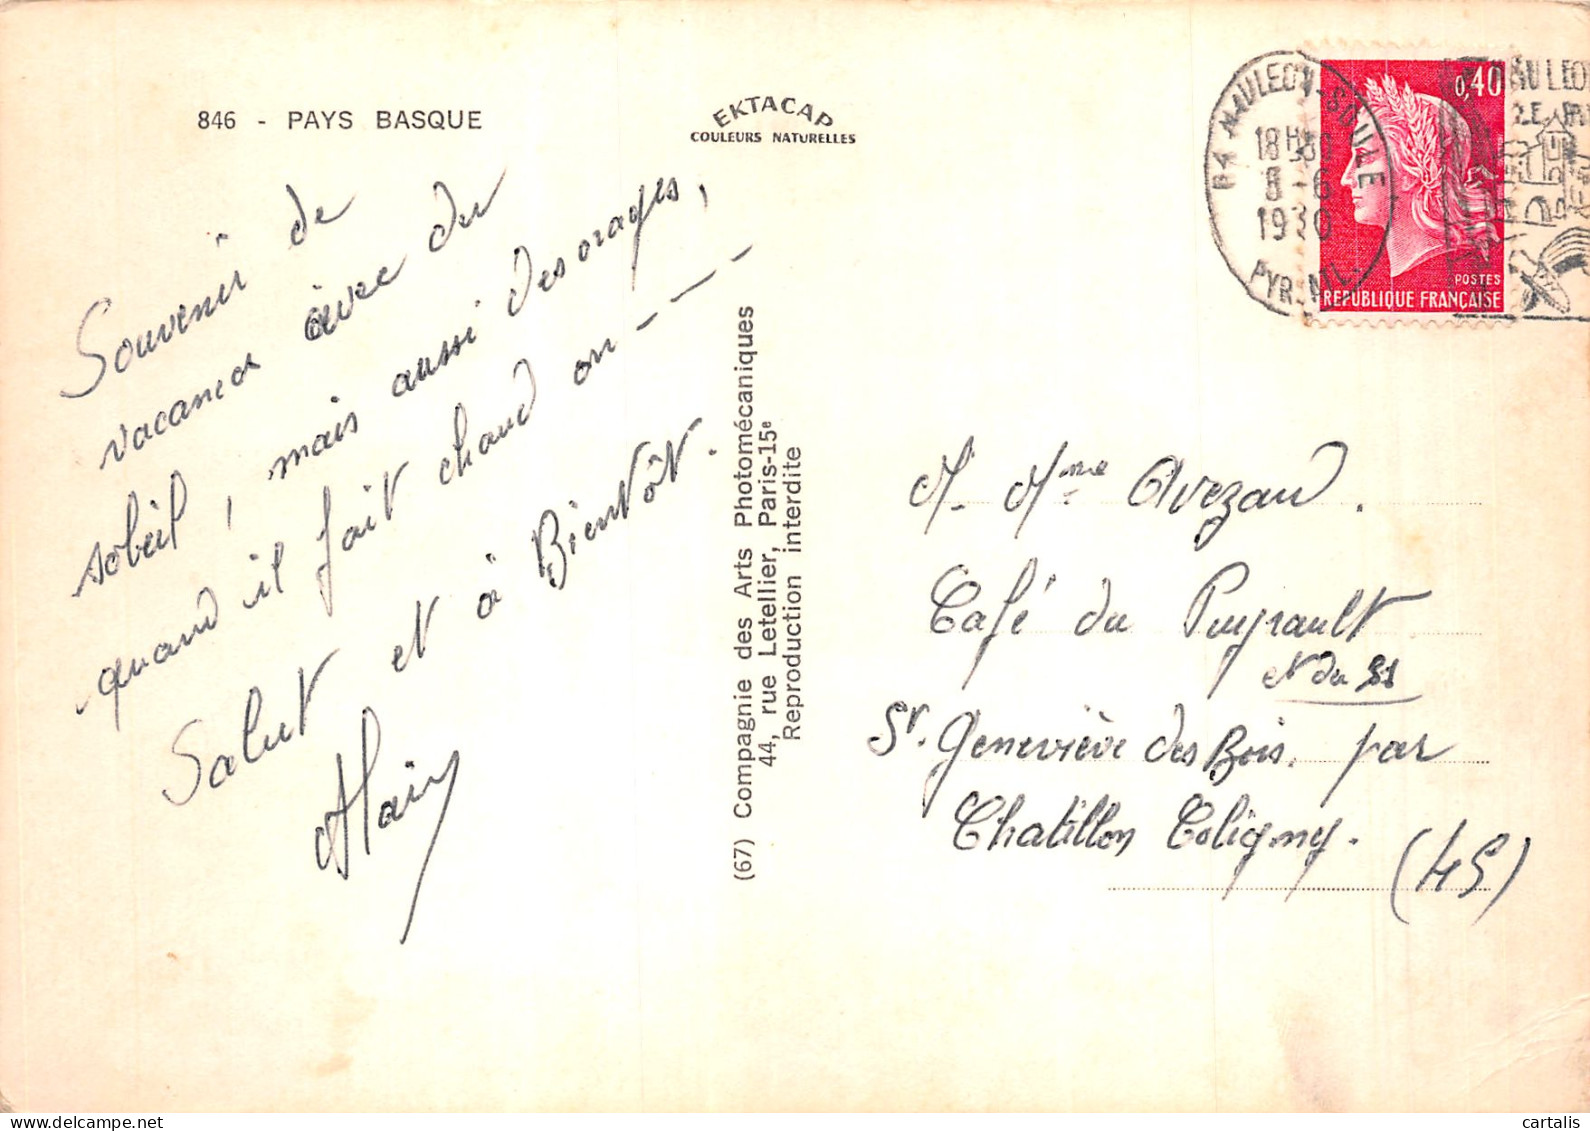 846 - PAYS BASQUE
EKTACAP
COULEURS NATURELLES
Souvenir de
vacances avec du
soleil, mais aussi des orages,
quand il fait chaud on - - - -
Salut et à Bientôt.
Alain
(67) Compagnie des Arts Photomécaniques
44, rue Letellier, Paris-15e
Reproduction interdite
64 MAULEON-SOULE
18H
8-6
PYR. ATL.
0,40
POSTES
REPUBLIQUE FRANÇAISE
M. Mme Avezau.
Café du Puyrault
et du 21
St. Geneviève des Bois. par
Chatillon Coligny.
(45)
cartalis
www.delcampe.net